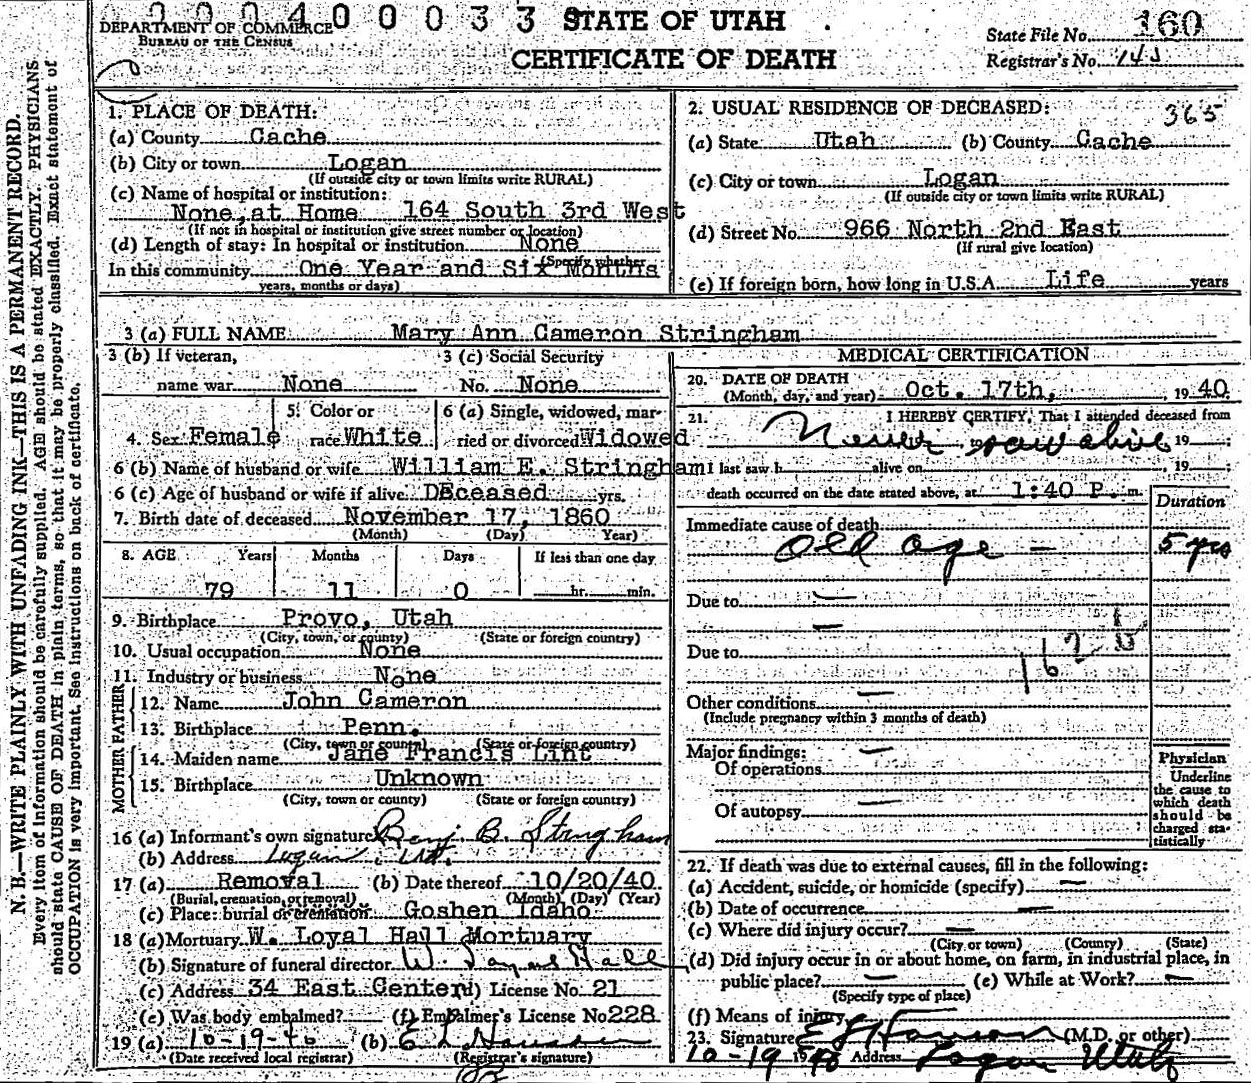 000400033
STATE OF UTAH
CERTIFICATE OF DEATH
DEPARTMENT OF COMMERCE
BUREAU OF THE CENSUS
State File No. 160
Registrar's No.
N. B.—WRITE PLAINLY WITH UNFADING INK—THIS IS A PERMANENT RECORD.
Every item of information should be carefully supplied. AGE should be stated EXACTLY. PHYSICIANS
should state CAUSE OF DEATH in plain terms, so that it may be properly classified. Exact statement of
OCCUPATION is very important. See instructions on back of certificate.
1. PLACE OF DEATH:
(a) County Cache
(b) City or town Logan
(If outside city or town limits write RURAL)
(c) Name of hospital or institution:
None, at Home 164 South 3rd West
(If not in hospital or institution give street number or location)
(d) Length of stay: In hospital or institution None
(Specify whether
In this community One Year and Six Months
years, months or days)
2. USUAL RESIDENCE OF DECEASED:
365
(a) State Utah (b) County Cache
(c) City or town Logan
(If outside city or town limits write RURAL)
(d) Street No. 966 North 2nd East
(If rural give location)
(e) If foreign born, how long in U.S.A. Life years
3 (a) FULL NAME Mary Ann Cameron Stringham
3 (b) If veteran, name war None
3 (c) Social Security No. None
4. Sex Female
5. Color or race White
6 (a) Single, widowed, married or divorced Widowed
6 (b) Name of husband or wife William E. Stringham
6 (c) Age of husband or wife if alive Deceased yrs.
7. Birth date of deceased November 17, 1860
(Month) (Day) Year)
8. AGE Years Months Days If less than one day
79 11 0 hr. min.
9. Birthplace Provo, Utah
(City, town, or county) (State or foreign country)
10. Usual occupation None
11. Industry or business None
FATHER
12. Name John Cameron
13. Birthplace Penn.
(City, town or county) (State or foreign country)
MOTHER
14. Maiden name Jane Francis Lint
15. Birthplace Unknown
(City, town or county) (State or foreign country)
16 (a) Informant's own signature Benj B. Stringham
(b) Address Logan, Ut.
17 (a) Removal (b) Date thereof 10/20/40
(Burial, cremation, or removal) (Month) (Day) (Year)
(c) Place: burial or cremation Goshen Idaho
18 (a) Mortuary W. Loyal Hall Mortuary
(b) Signature of funeral director W. Loyal Hall
(c) Address 34 East Center (d) License No. 21
(e) Was body embalmed? (f) Embalmer's License No 228
19 (a) 10-19-40 (b)
(Date received local registrar) (Registrar's signature)
MEDICAL CERTIFICATION
20. DATE OF DEATH
(Month, day, and year) Oct. 17th, 1940
21. I HEREBY CERTIFY, That I attended deceased from
Never saw alive 19
I last saw h alive on , 19 ;
death occurred on the date stated above, at 1:40 P. m.
Duration
Immediate cause of death
Old age — 5 yrs
Due to —
—
Due to
162
Other conditions —
(Include pregnancy within 3 months of death)
Major findings: —
Of operations
Of autopsy —
Physician
Underline
the cause to
which death
should be
charged sta-
tistically
22. If death was due to external causes, fill in the following:
(a) Accident, suicide, or homicide (specify) —
(b) Date of occurrence —
(c) Where did injury occur? —
(City or town) (County) (State)
(d) Did injury occur in or about home, on farm, in industrial place, in
public place? — (e) While at Work? —
(Specify type of place)
(f) Means of injury
23. Signature (M.D. or other)
10-19 1940 Address Logan Utah